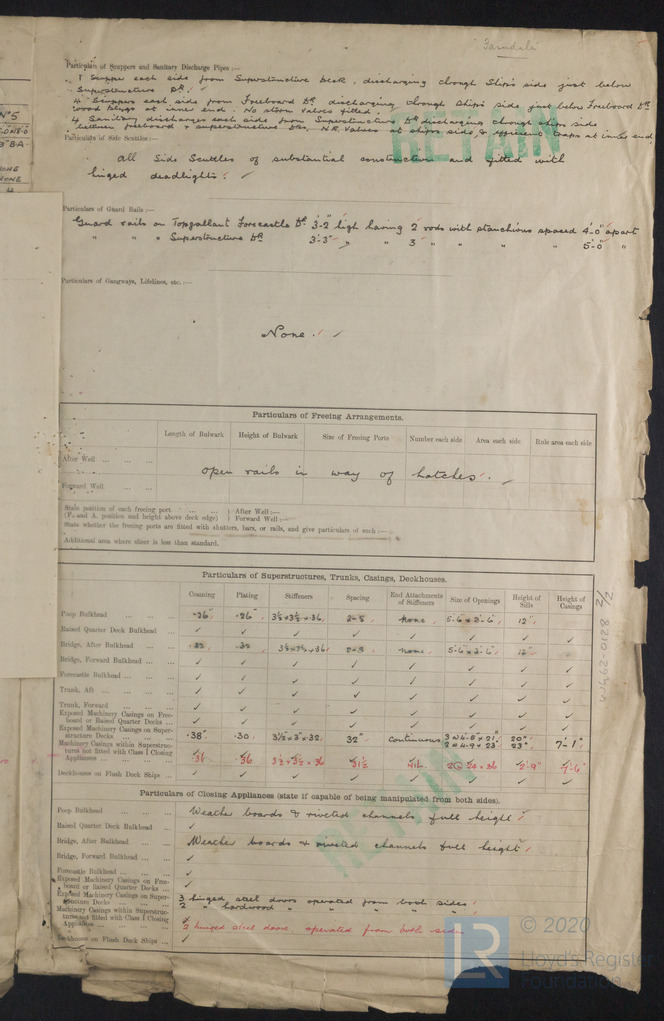 Farndale
Particulars of Scuppers and Sanitary Discharge Pipes:—
1 Scupper each side from Superstructure Deck, discharging through Ship's side just below
Superstructure Dk.
4 Scuppers each side from Freeboard Dk discharging through ship's side just below Freeboard Dk
Wood plugs at inner end. No storm valves fitted.
4 Sanitary discharges each side from Superstructure Dk discharging through ships side
between freeboard & superstructure Dks, N.R. Valves at ships side, & efficient traps at inner end.
Particulars of Side Scuttles:—
All Side Scuttles of substantial construction and fitted with
hinged deadlights. ✓
RETAIN
Particulars of Guard Rails:—
Guard rails on Topgallant Forecastle Dk 3'-2" high having 2 rods with stanchions spaced 4'-0" apart
" " " Superstructure Dk 3'-3" " " 3 " " " " 5'-0" "
Particulars of Gangways, Lifelines, etc.:—
None. ✓
Particulars of Freeing Arrangements.
Length of Bulwark Height of Bulwark Size of Freeing Ports Number each side Area each side Rule area each side
After Well ... ... ...
open rails in way of hatches. ✓
Forward Well ... ... ...
State position of each freeing port ... ... ... After Well:—
(F. and A. position and height above deck edge) Forward Well:—
State whether the freeing ports are fitted with shutters, bars, or rails, and give particulars of each:—
Additional area where sheer is less than standard.
Particulars of Superstructures, Trunks, Casings, Deckhouses.
Coaming Plating Stiffeners Spacing End Attachments of Stiffeners Size of Openings Height of Sills Height of Casings
Poop Bulkhead ... ... ... .36 .26 3½ x 3½ x .36 2-5 None 5-6 x 2-6 12"
Raised Quarter Deck Bulkhead ... ✓ ✓ ✓ ✓ ✓ ✓ ✓ ✓
Bridge, After Bulkhead ... ... none 5-6 x 2-6 12"
Bridge, Forward Bulkhead ... ... ✓ ✓ ✓ ✓ ✓ ✓ ✓ ✓
Forecastle Bulkhead ... ... ✓ ✓ ✓ ✓ ✓ ✓ ✓ ✓
Trunk, Aft ... ... ... ✓ ✓ ✓ ✓ ✓ ✓ ✓ ✓
Trunk, Forward ... ... ... ✓ ✓ ✓ ✓ ✓ ✓ ✓ ✓
Exposed Machinery Casings on Free-
board or Raised Quarter Decks ... ✓ ✓ ✓ ✓ ✓ ✓ ✓ ✓
Exposed Machinery Casings on Super-
structure Decks ... ... ... .38" .30 3½ x 3 x .32 32" Continuous 3 @ 4-8 x 21" 2 @ 4-9 x 23" 20" 23" 7'-1"
Machinery Casings within Superstruc-
tures not fitted with Class I Closing
Appliances ... ... ... .36 .36 3½ x 3½ x .36 31½ Nil. 2 @ 20 x 36 2'-9" 7'-6"
Deckhouses on Flush Deck Ships ... ✓ ✓ ✓ ✓ ✓ ✓ ✓ ✓
Particulars of Closing Appliances (state if capable of being manipulated from both sides).
Poop Bulkhead ... ... ... Weather boards & riveted channels full height
Raised Quarter Deck Bulkhead ... ✓
Bridge, After Bulkhead ... ... Weather boards & riveted channels full height
Bridge, Forward Bulkhead ... ... ✓
Forecastle Bulkhead ... ... ✓
Exposed Machinery Casings on Free-
board or Raised Quarter Decks ... ✓
Exposed Machinery Casings on Super-
structure Decks ... ... ... 3 hinged steel doors operated from both sides
2 " hardwood " " " " "
Machinery Casings within Superstruc-
tures not fitted with Class I Closing
Appliances ... ... ... 2 hinged steel doors operated from both sides
Deckhouses on Flush Deck Ships ... ✓
RETAIN
W462-0128 2/2
© 2020
LR
Lloyd's Register
Foundation